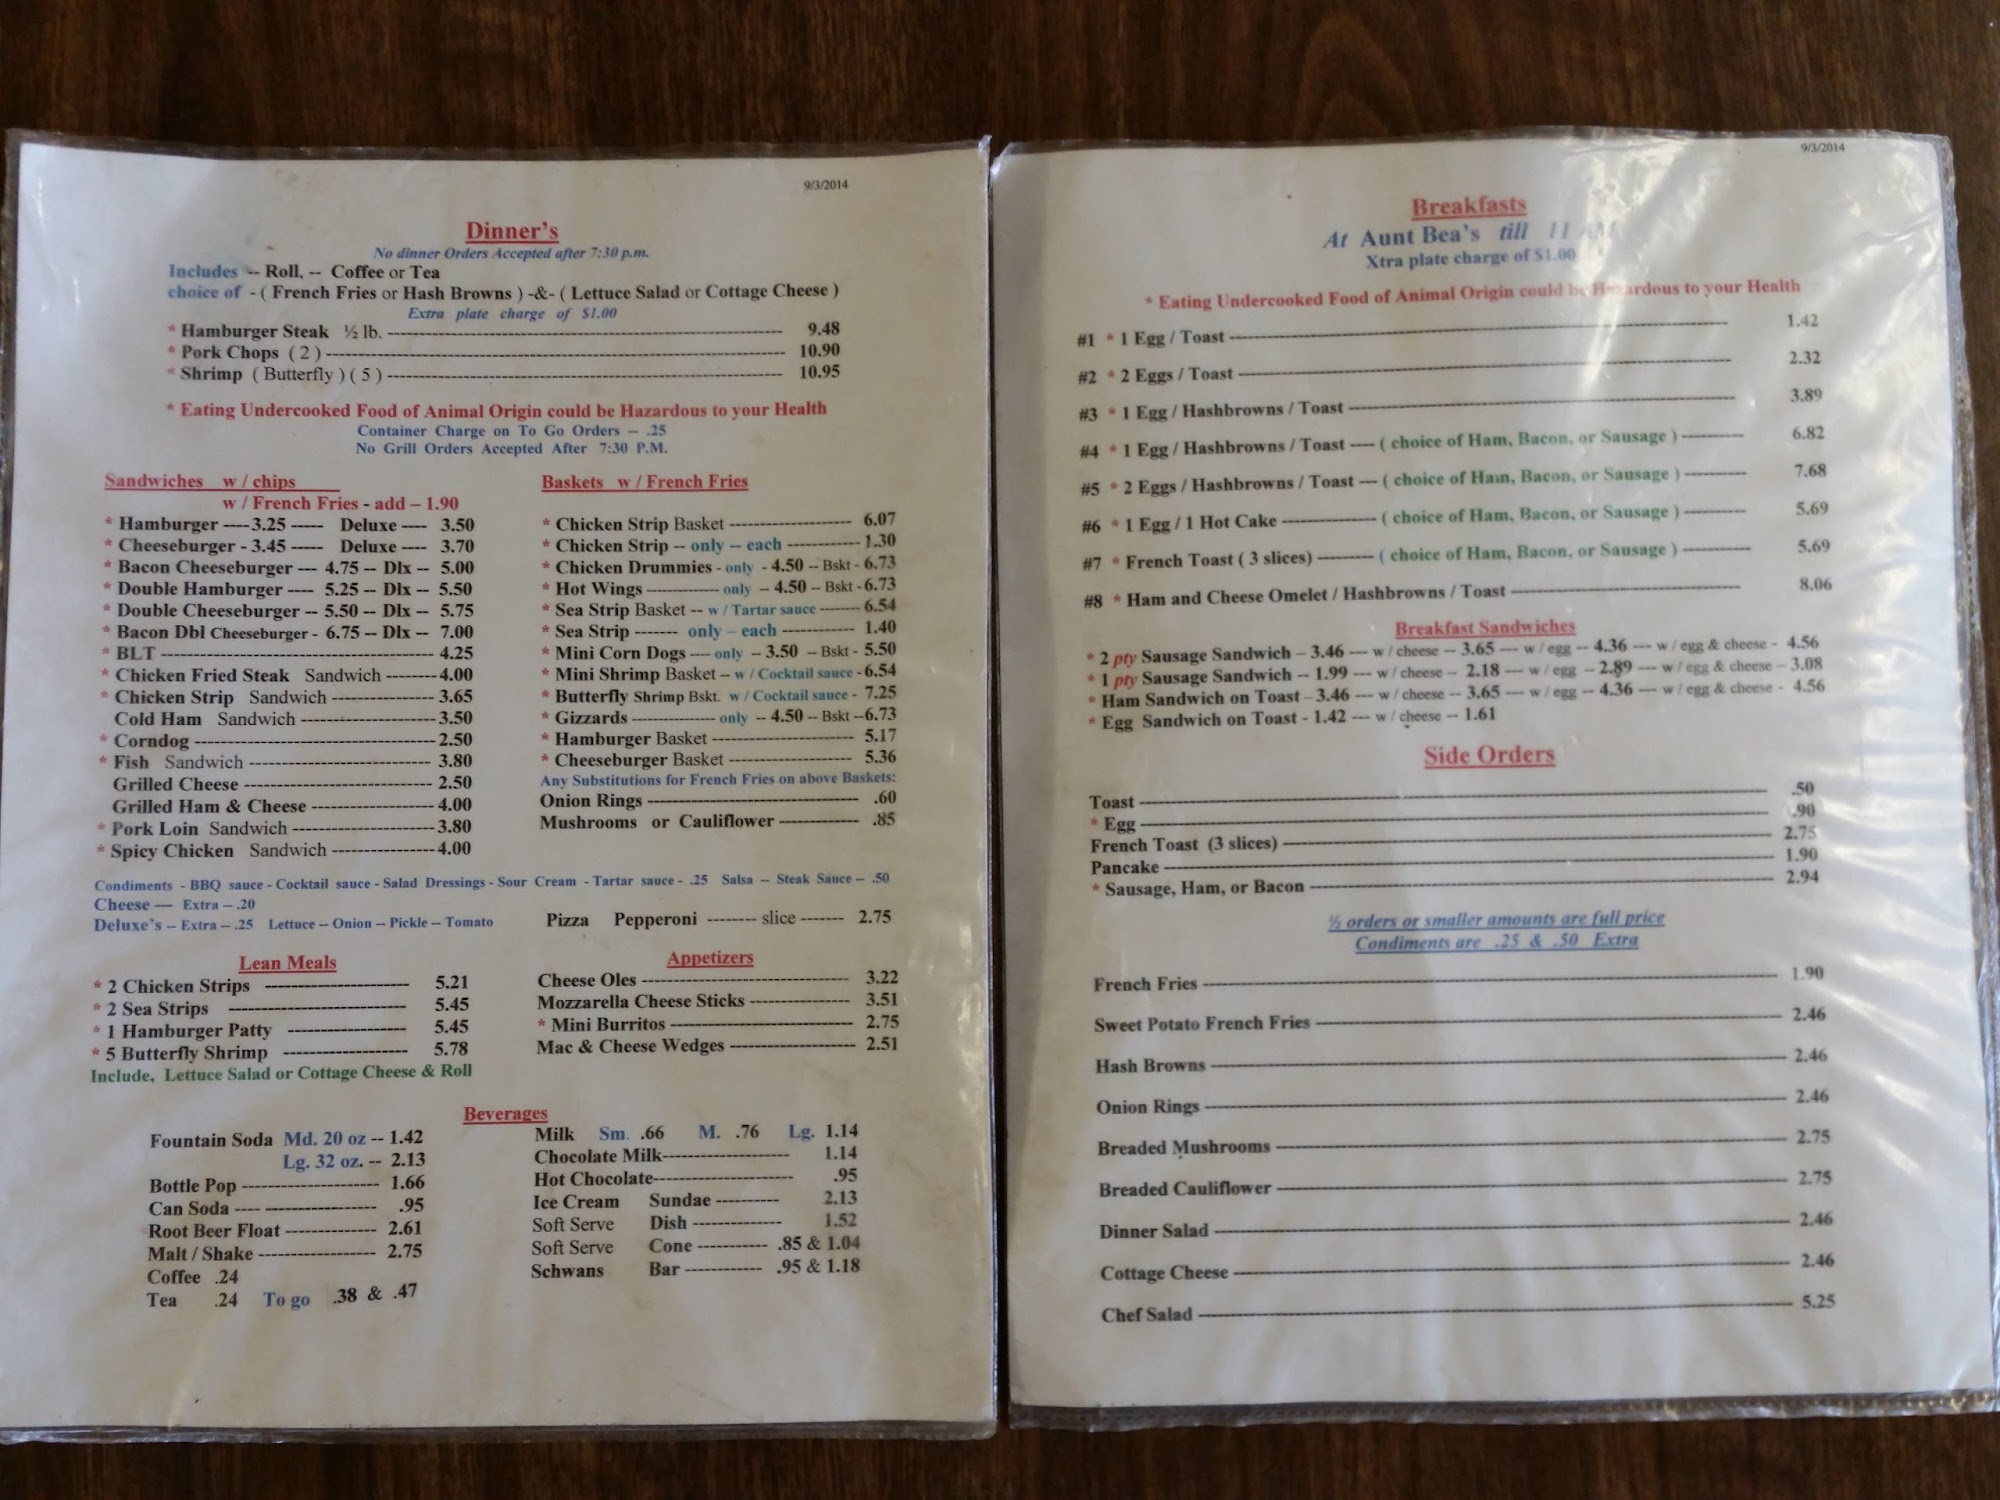 9/3/2014
Dinner's
No dinner Orders Accepted after 7:30 p.m.
Includes -- Roll, -- Coffee or Tea
choice of - ( French Fries or Hash Browns ) -&- ( Lettuce Salad or Cottage Cheese )
Extra plate charge of $1.00
* Hamburger Steak ½ lb. ---------- 9.48
* Pork Chops ( 2 ) ---------- 10.90
* Shrimp ( Butterfly ) ( 5 ) ---------- 10.95
* Eating Undercooked Food of Animal Origin could be Hazardous to your Health
Container Charge on To Go Orders -- .25
No Grill Orders Accepted After 7:30 P.M.
Sandwiches w / chips
w / French Fries - add – 1.90
* Hamburger ----3.25 ----- Deluxe ---- 3.50
* Cheeseburger - 3.45 ----- Deluxe ---- 3.70
* Bacon Cheeseburger --- 4.75 -- Dlx -- 5.00
* Double Hamburger ---- 5.25 -- Dlx -- 5.50
* Double Cheeseburger -- 5.50 -- Dlx -- 5.75
* Bacon Dbl Cheeseburger - 6.75 -- Dlx -- 7.00
* BLT ---------- 4.25
* Chicken Fried Steak Sandwich --------4.00
* Chicken Strip Sandwich ---------- 3.65
Cold Ham Sandwich ---------- 3.50
* Corndog ---------- 2.50
* Fish Sandwich ---------- 3.80
Grilled Cheese ---------- 2.50
Grilled Ham & Cheese ---------- 4.00
* Pork Loin Sandwich ---------- 3.80
* Spicy Chicken Sandwich ---------- 4.00
Baskets w / French Fries
* Chicken Strip Basket ---------- 6.07
* Chicken Strip -- only -- each ---------- 1.30
* Chicken Drummies - only - 4.50 -- Bskt - 6.73
* Hot Wings ---------- only -- 4.50 -- Bskt - 6.73
* Sea Strip Basket -- w / Tartar sauce -------- 6.54
* Sea Strip ------- only – each ---------- 1.40
* Mini Corn Dogs ---- only -- 3.50 -- Bskt - 5.50
* Mini Shrimp Basket -- w / Cocktail sauce - 6.54
* Butterfly Shrimp Bskt. w / Cocktail sauce - 7.25
* Gizzards ---------- only -- 4.50 -- Bskt --6.73
* Hamburger Basket ---------- 5.17
* Cheeseburger Basket ---------- 5.36
Any Substitutions for French Fries on above Baskets:
Onion Rings ---------- .60
Mushrooms or Cauliflower ---------- .85
Condiments - BBQ sauce - Cocktail sauce - Salad Dressings - Sour Cream - Tartar sauce - .25 Salsa -- Steak Sauce -- .50
Cheese --- Extra -- .20
Deluxe's -- Extra -- .25 Lettuce -- Onion -- Pickle -- Tomato
Pizza Pepperoni -------- slice ------- 2.75
Lean Meals
* 2 Chicken Strips ---------- 5.21
* 2 Sea Strips ---------- 5.45
* 1 Hamburger Patty ---------- 5.45
* 5 Butterfly Shrimp ---------- 5.78
Include, Lettuce Salad or Cottage Cheese & Roll
Appetizers
Cheese Oles ---------- 3.22
Mozzarella Cheese Sticks ---------- 3.51
* Mini Burritos ---------- 2.75
Mac & Cheese Wedges ---------- 2.51
Beverages
Fountain Soda Md. 20 oz -- 1.42
Lg. 32 oz. -- 2.13
Bottle Pop ---------- 1.66
Can Soda ---------- .95
Root Beer Float ---------- 2.61
Malt / Shake ---------- 2.75
Coffee .24
Tea .24 To go .38 & .47
Milk Sm. .66 M. .76 Lg. 1.14
Chocolate Milk---------- 1.14
Hot Chocolate---------- .95
Ice Cream Sundae ---------- 2.13
Soft Serve Dish ---------- 1.52
Soft Serve Cone ---------- .85 & 1.04
Schwans Bar ---------- .95 & 1.18
9/3/2014
Breakfasts
At Aunt Bea's till 11 AM
Xtra plate charge of $1.00
* Eating Undercooked Food of Animal Origin could be Hazardous to your Health
#1 * 1 Egg / Toast ---------- 1.42
#2 * 2 Eggs / Toast ---------- 2.32
#3 * 1 Egg / Hashbrowns / Toast ---------- 3.89
#4 * 1 Egg / Hashbrowns / Toast ---- ( choice of Ham, Bacon, or Sausage ) ---------- 6.82
#5 * 2 Eggs / Hashbrowns / Toast --- ( choice of Ham, Bacon, or Sausage ) ---------- 7.68
#6 * 1 Egg / 1 Hot Cake ---------- ( choice of Ham, Bacon, or Sausage ) ---------- 5.69
#7 * French Toast ( 3 slices) -------- ( choice of Ham, Bacon, or Sausage ) ---------- 5.69
#8 * Ham and Cheese Omelet / Hashbrowns / Toast ---------- 8.06
Breakfast Sandwiches
* 2 pty Sausage Sandwich – 3.46 --- w / cheese -- 3.65 --- w / egg -- 4.36 --- w / egg & cheese - 4.56
* 1 pty Sausage Sandwich -- 1.99 --- w / cheese -- 2.18 --- w / egg -- 2.89 --- w / egg & cheese – 3.08
* Ham Sandwich on Toast – 3.46 --- w / cheese -- 3.65 --- w / egg -- 4.36 --- w / egg & cheese - 4.56
* Egg Sandwich on Toast - 1.42 --- w / cheese -- 1.61
Side Orders
Toast ---------- .50
* Egg ---------- .90
French Toast (3 slices) ---------- 2.75
Pancake ---------- 1.90
* Sausage, Ham, or Bacon ---------- 2.94
½ orders or smaller amounts are full price
Condiments are .25 & .50 Extra
French Fries ---------- 1.90
Sweet Potato French Fries ---------- 2.46
Hash Browns ---------- 2.46
Onion Rings ---------- 2.46
Breaded Mushrooms ---------- 2.75
Breaded Cauliflower ---------- 2.75
Dinner Salad ---------- 2.46
Cottage Cheese ---------- 2.46
Chef Salad ---------- 5.25